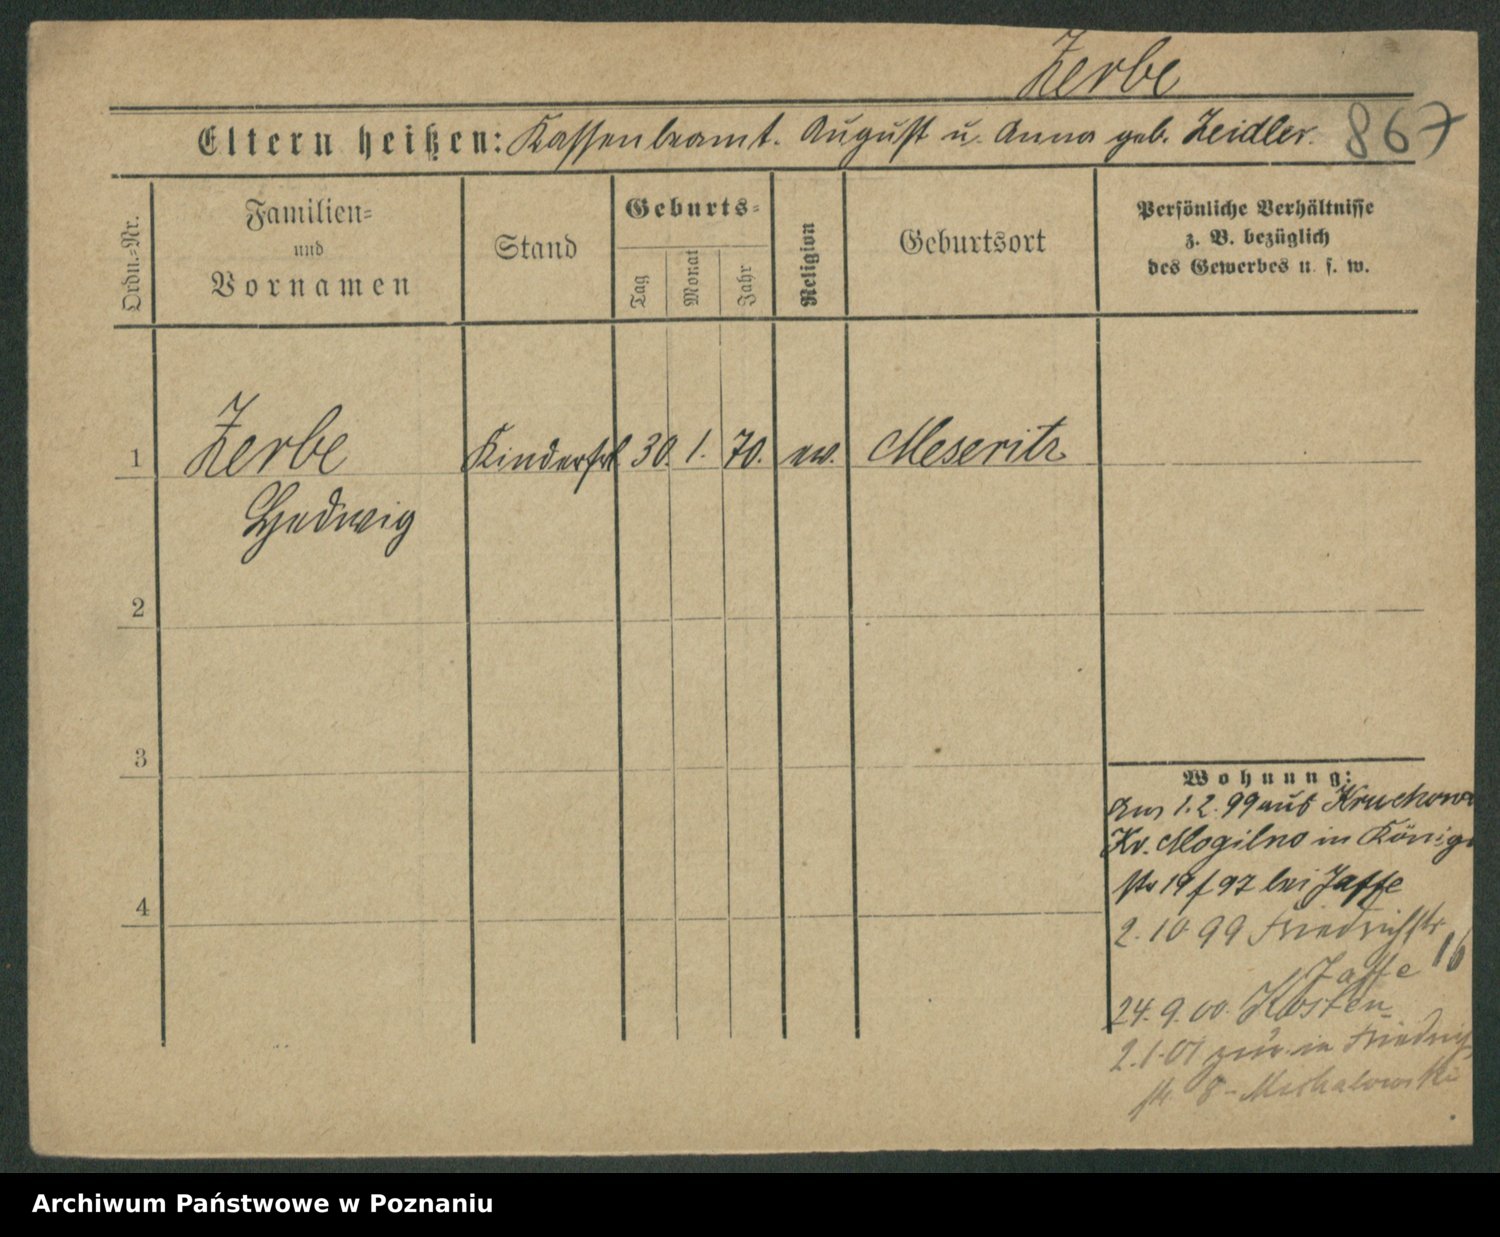 Zerbe
Eltern heißen: Kassenbeamt. August u. Anna geb. Zeidler.
867
Ordn.-Nr.
Familien-
und
Vornamen
Stand
Geburts-
Tag
Monat
Jahr
Religion
Geburtsort
Persönliche Verhältnisse
z. B. bezüglich
des Gewerbes u. s. w.
1 Zerbe Kinderfrl. 30. 1. 70. ew. Meseritz
Hedwig
2
3
4
Wohnung:
1.2.99 aus Kruchowo
Kr. Mogilno in König
str 19 f 97 bei Jaffe
2.10.99 Friedrichstr
16
Jaffe
24.9.00. Kosten
2.1.01 zur. in Friedrich
str. 8 - Michalowski